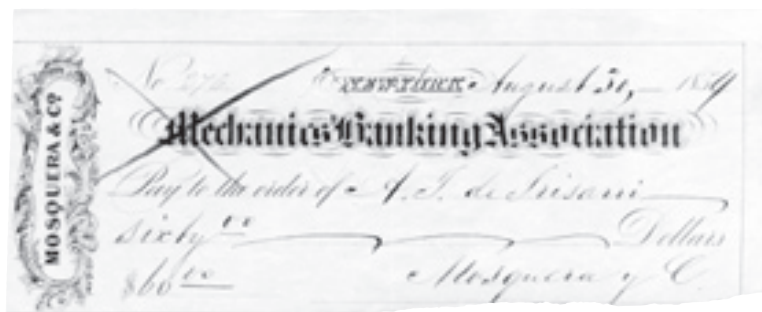 MOSQUERA & Cº
No 272 NEW-YORK August 30, 1859
Mechanics' Banking Association
Pay to the order of A. J. de Irisarri
sixty 00 Dollars
$60 00 Mosquera y C.